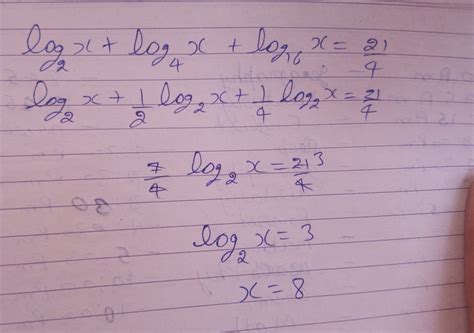 log₂x + log₄x + log₁₆x = 21/4
log₂x + 1/2 log₂x + 1/4 log₂x = 21/4
7/4 log₂x = 21/4 3
log₂x = 3
x = 8